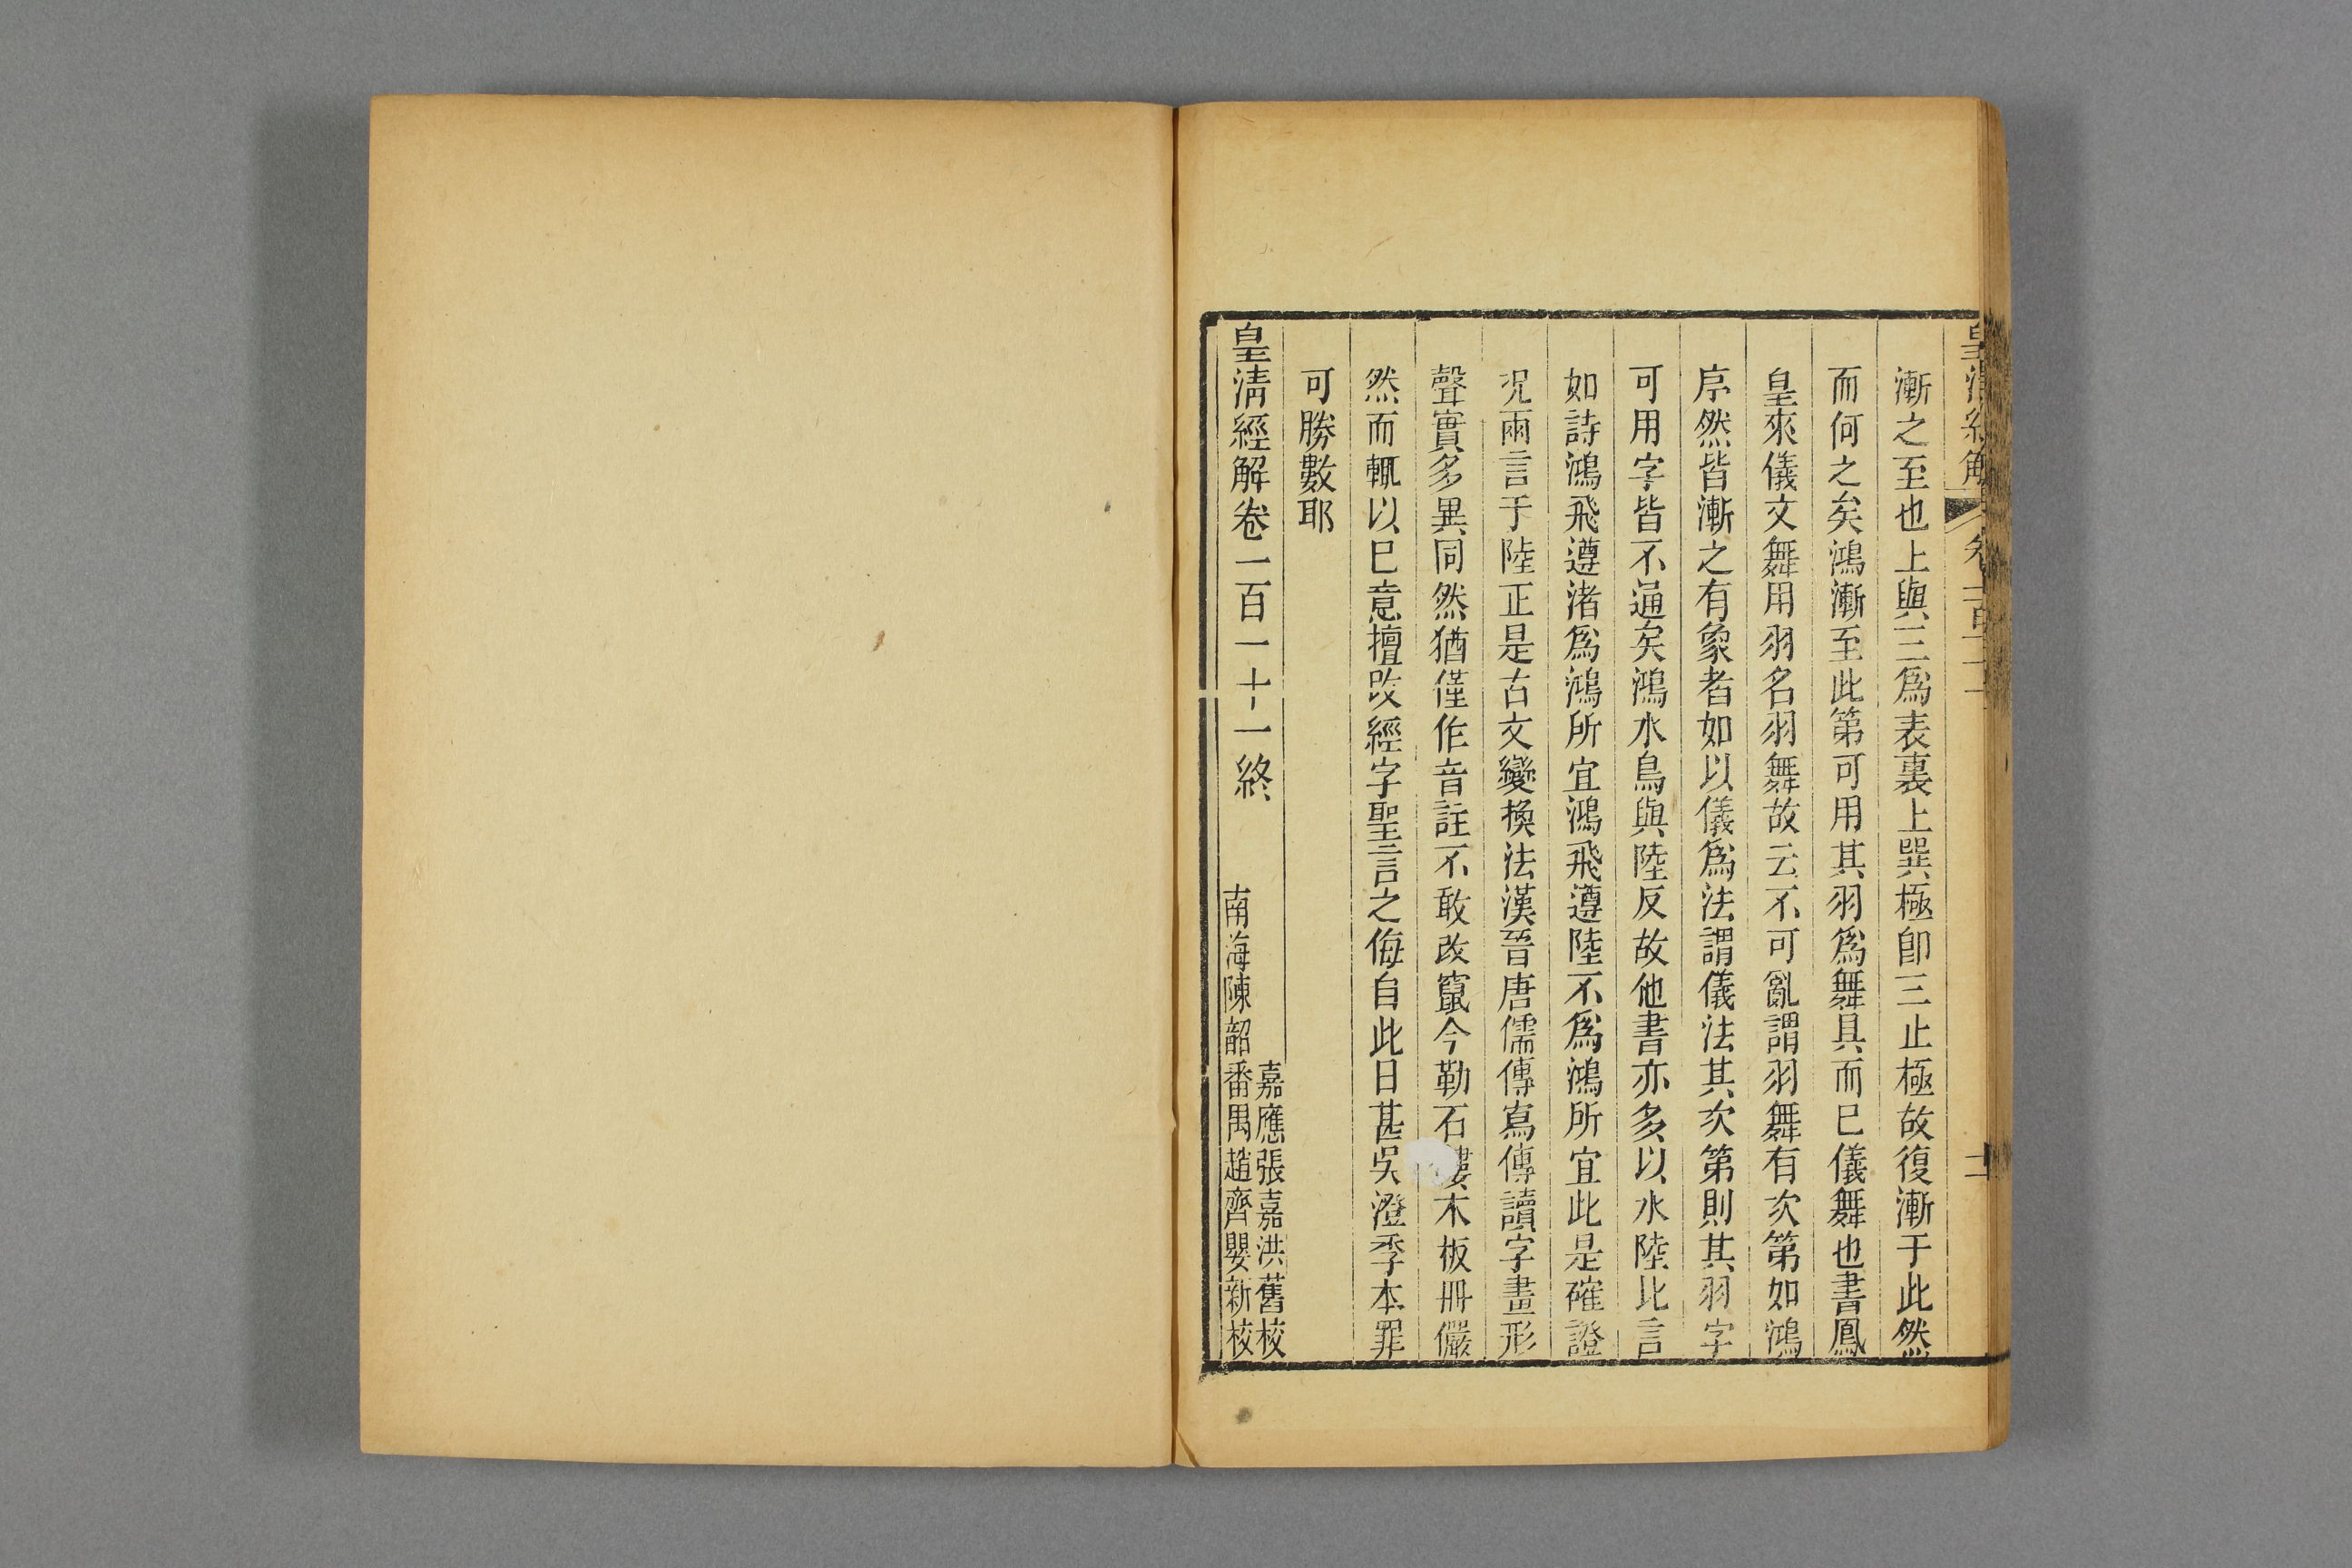 皇清經解
漸之至也上與三爲表裏上巽極卽三止極故復漸于此然
而何之矣鴻漸至此第可用其羽爲舞具而已儀舞也書鳳
皇來儀文舞用羽名羽舞故云不可亂謂羽舞有次第如鴻
序然皆漸之有象者如以儀爲法謂儀法其次第則其羽字
可用字皆不通矣鴻水鳥與陸反故他書亦多以水陸比言
如詩鴻飛遵渚爲鴻所宜鴻飛遵陸不爲鴻所宜此是確證
況兩言于陸正是古文變換法漢晉唐儒傳寫傳讀字畫形
聲實多異同然猶僅作音註不敢改竄今勒石鏤木板冊儼
然而輒以已意擅改經字聖言之侮自此日甚吳澄季本罪
可勝數耶
皇淸經解卷一百一十一終
嘉應張嘉洪舊校
南海陳韶番禺趙齊嬰新校